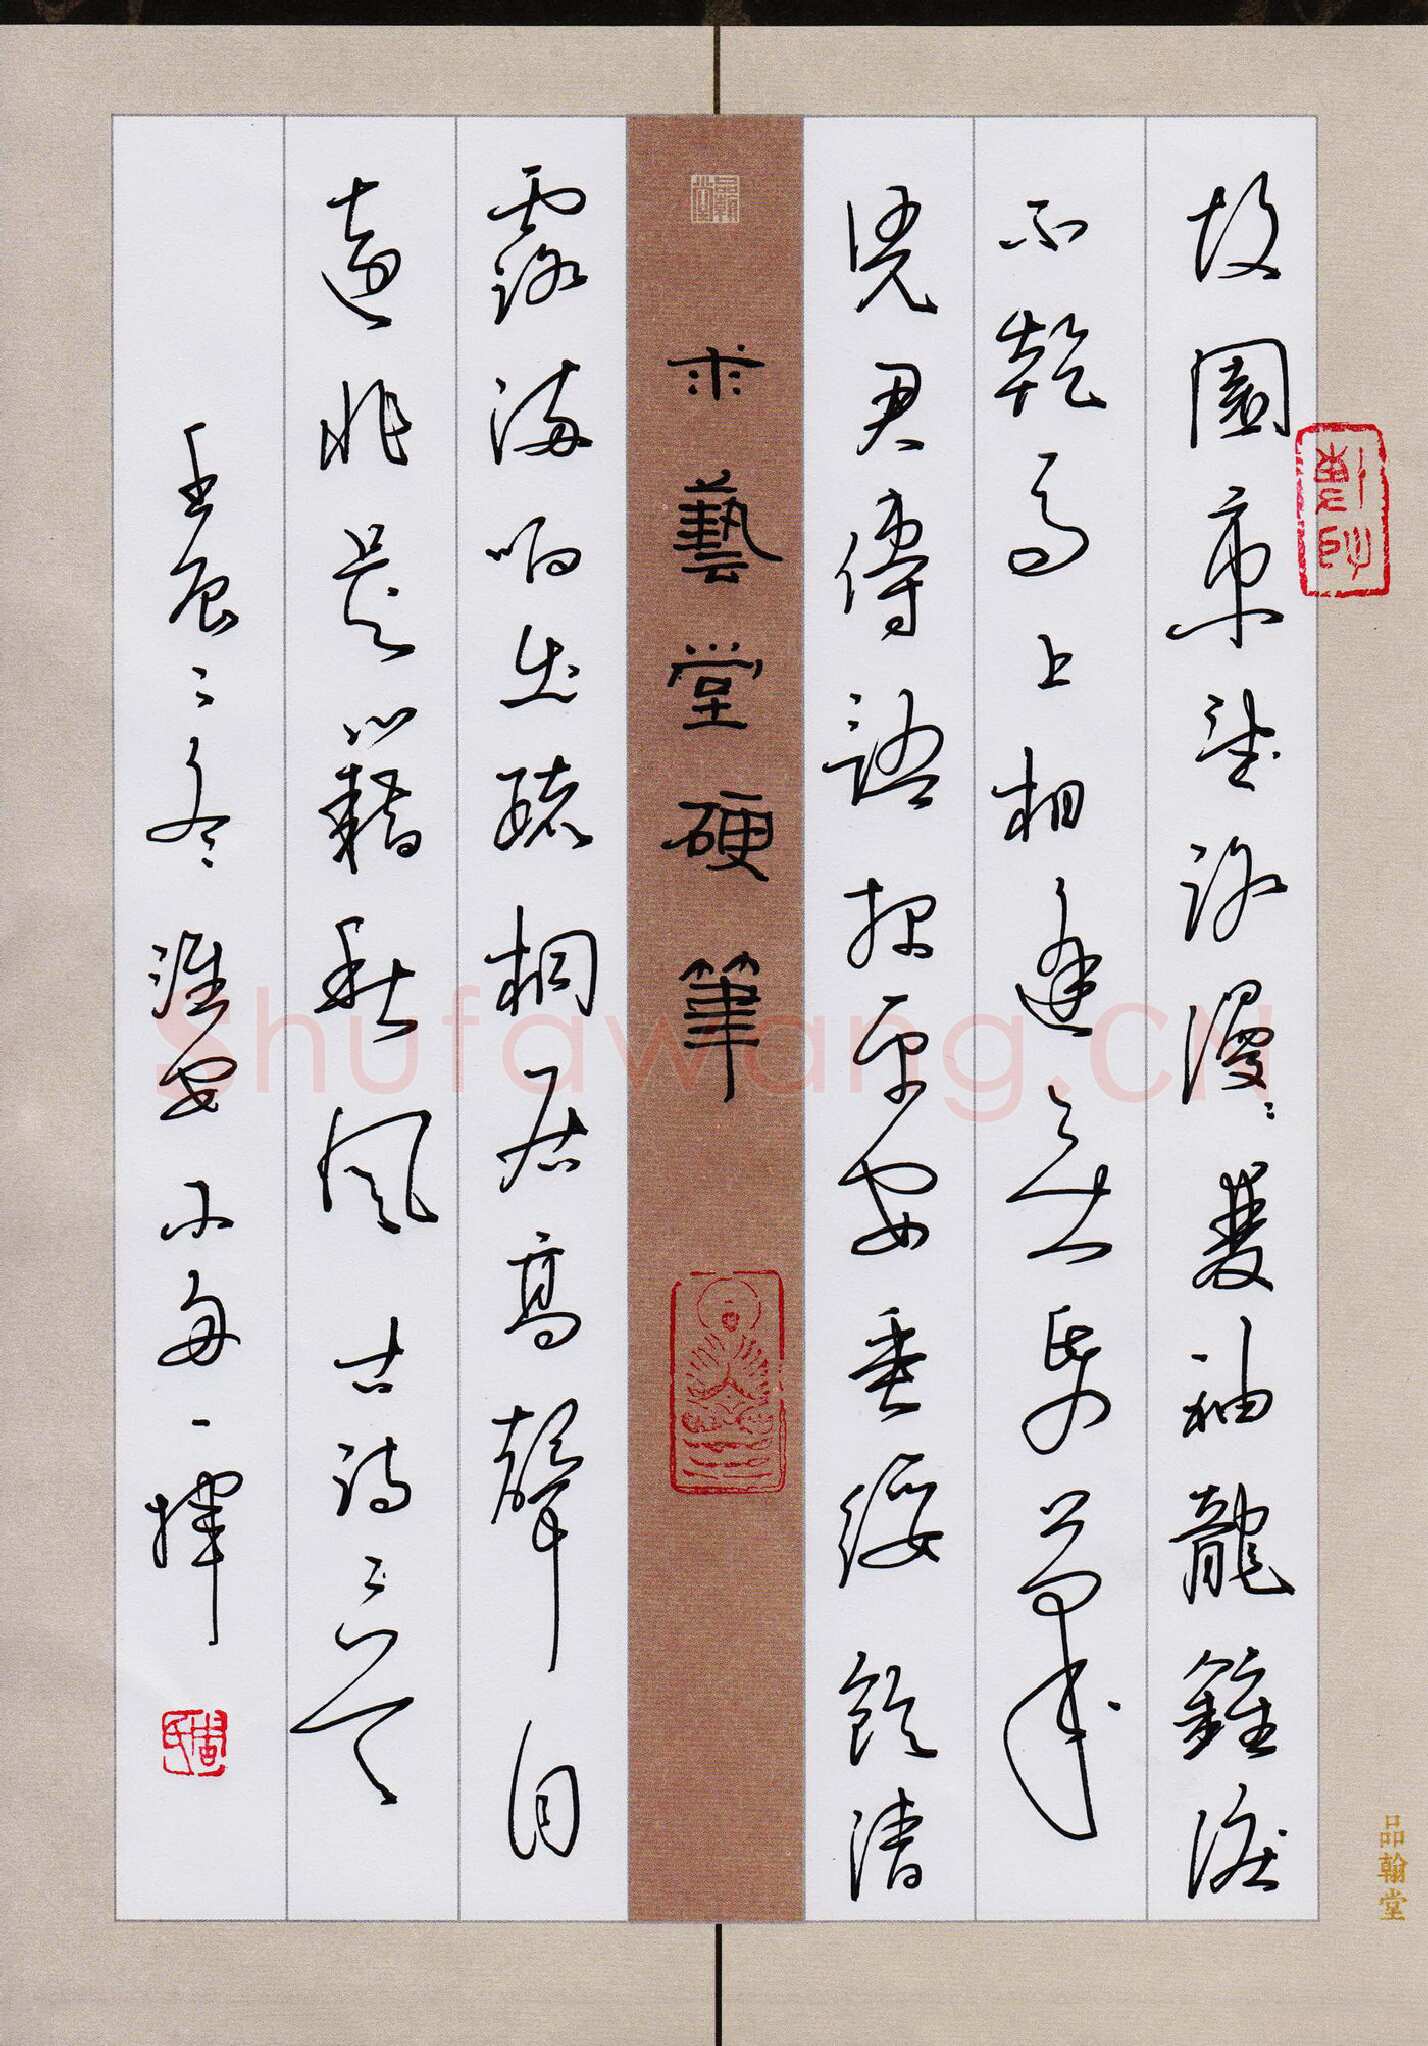 故園東望路漫〻雙袖龍鍾淚
不乾馬上相逢無紙筆
憑君傳語報平安垂緌飲清
求藝堂硬筆
露流响出疏桐居高聲自
遠非是藉秋風 古詩二首
壬辰之冬淮安小每一揮
品翰堂
Shufawang.CN